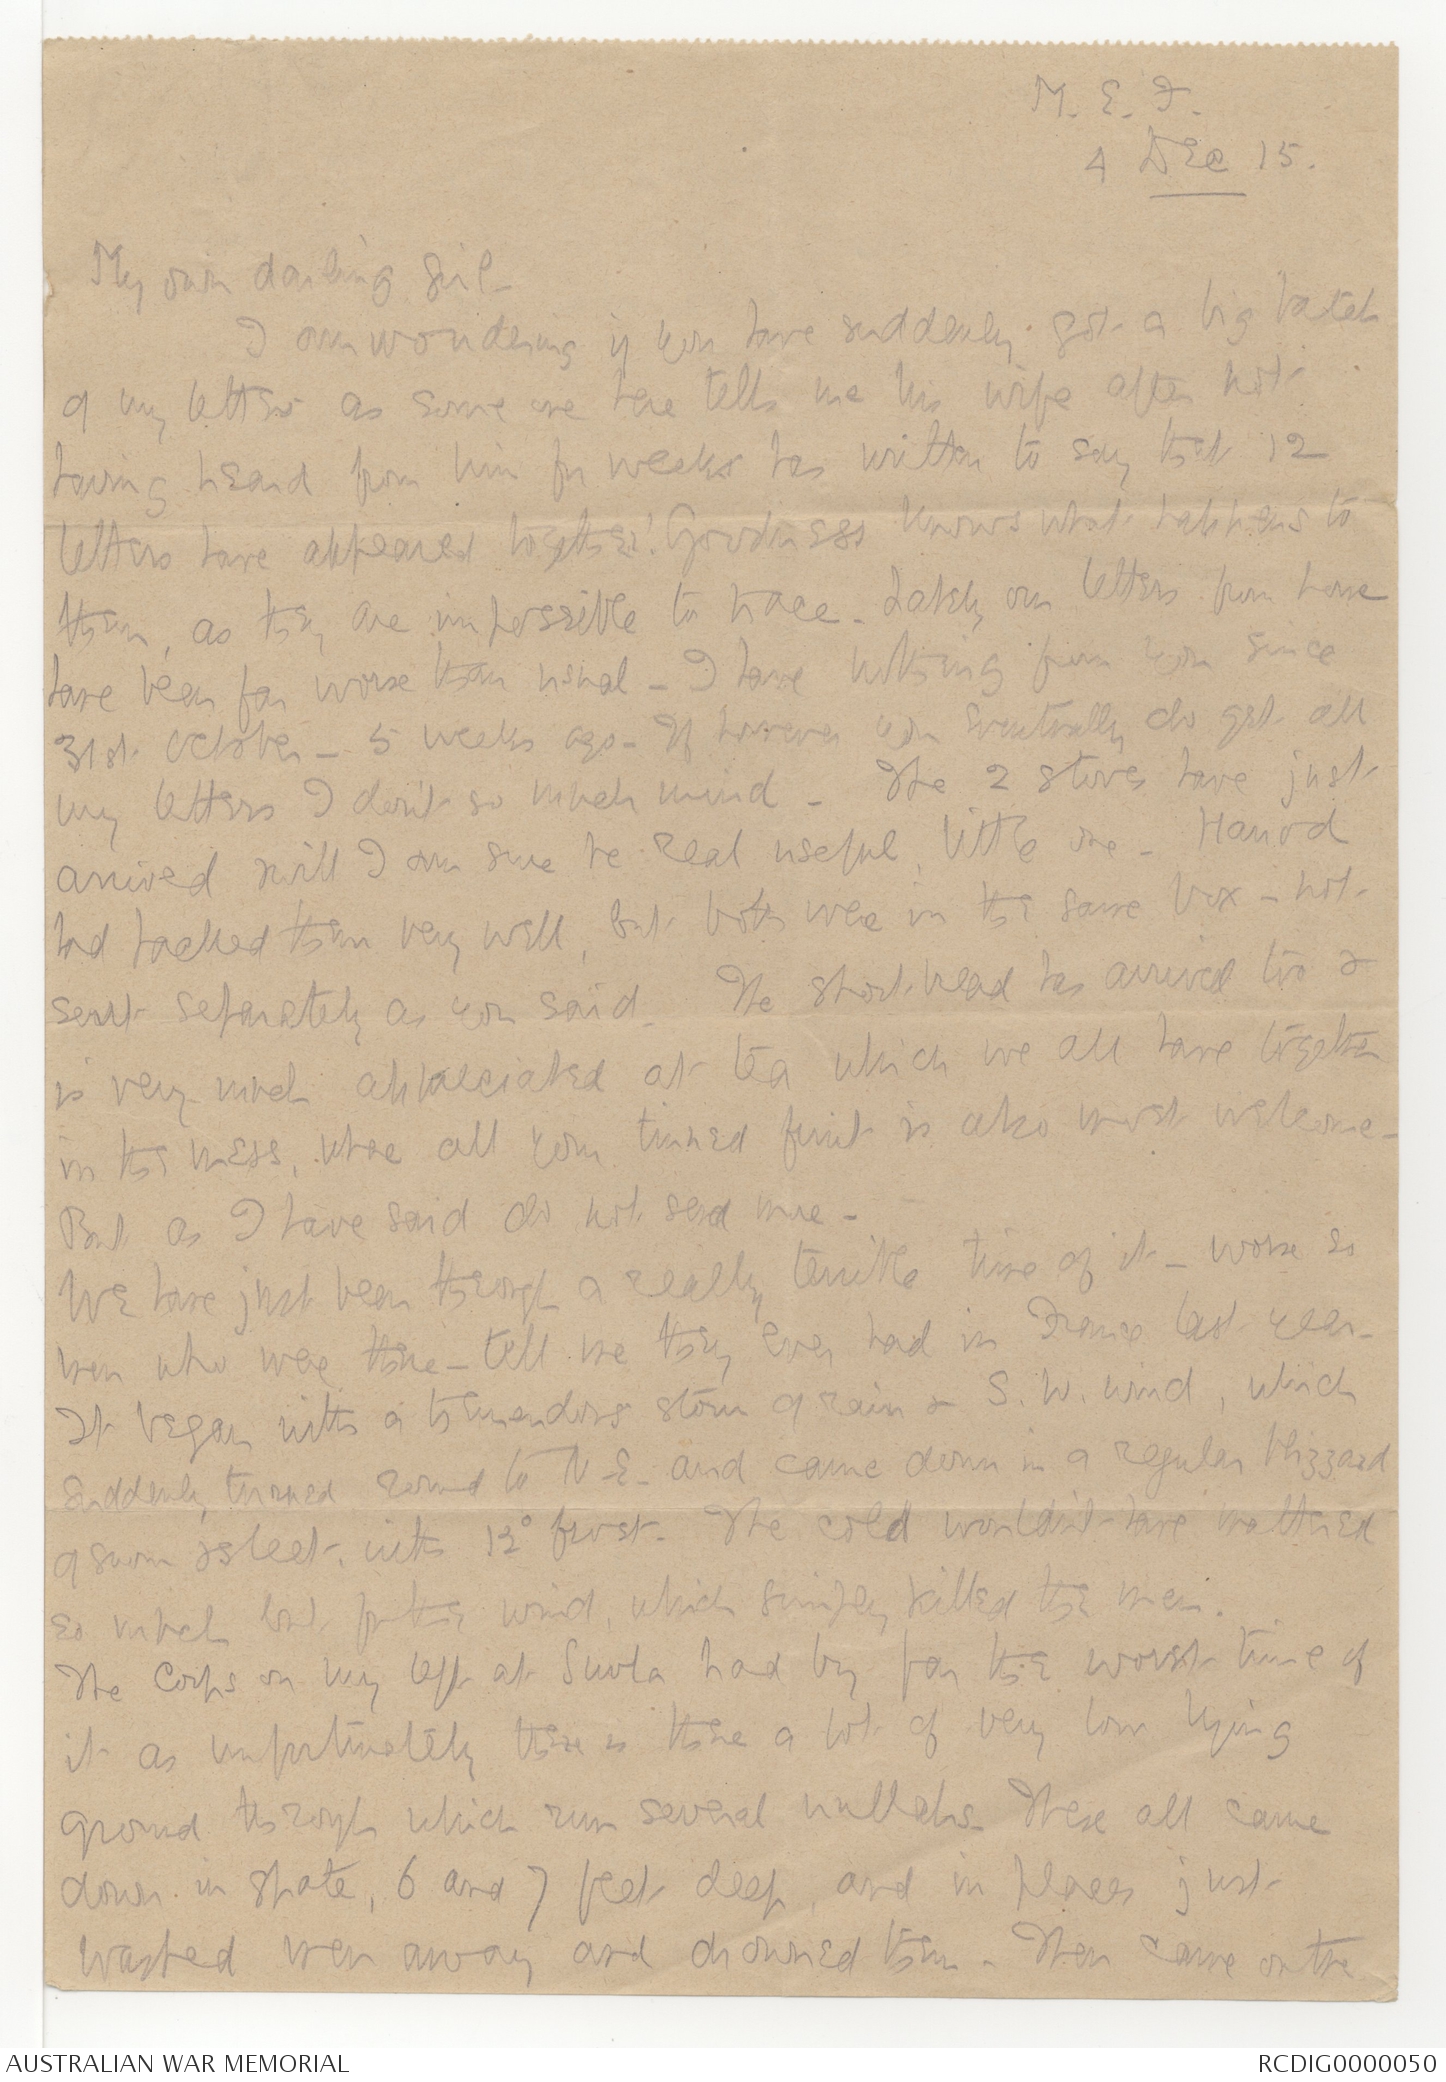 M. E. F.
4 Dec 15.
My own darling girl -
I am wondering if you have suddenly got a big batch
of my letters as some one here tells me his wife after not
having heard from him for weeks has written to say that 12
letters have appeared together! Goodness knows what happens to
them, as they are impossible to trace - Lately our letters from home
have been far worse than usual - I have nothing from you since
31st October - 5 weeks ago - If however you eventually do get all
my letters I don't so much mind - The 2 stoves have just
arrived & will I am sure be real useful, little one - Harrod
had packed them very well, but both were in the same box - not
sent separately as you said - The shortbread has arrived too &
is very much appreciated at tea which we all have together
in the mess, where all your tinned fruit is also most welcome -
But as I have said do not send more -
We have just been through a really terrible time of it - worse so
men who were there - tell me they ever had in France last year -
It began with a tremendous storm of rain & S. W. wind, which
suddenly turned round to N-E - and came down in a regular blizzard
of snow & sleet, with 12° frost - The cold wouldn't have mattered
so much but for the wind, which simply killed the men.
The Corps on my left at Suvla had by far the worst time of
it as unfortunately there is there a lot of very low lying
ground through which run several nullahs - These all came
down in spate, 6 and 7 feet deep, and in places just
washed men away and drowned them - Then came on the
AUSTRALIAN WAR MEMORIAL
RCDIG0000050